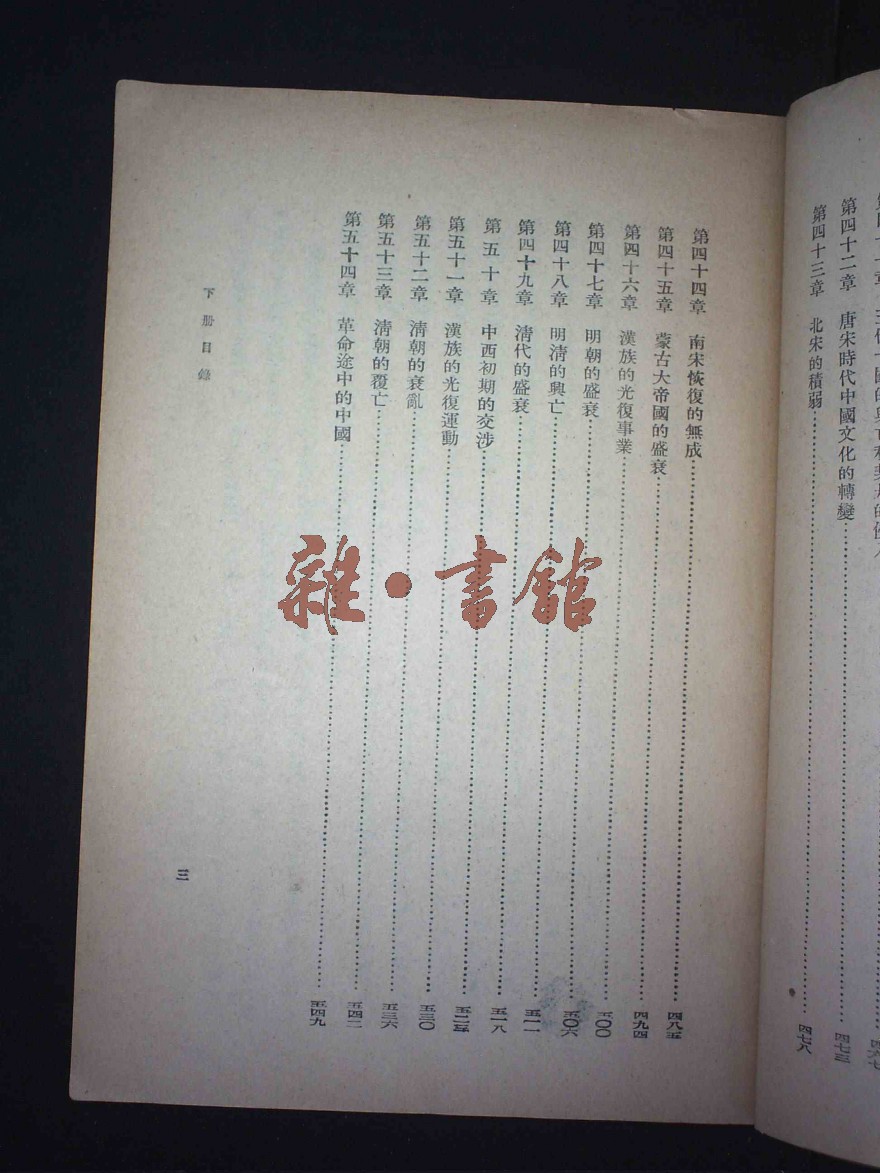 第四十二章　唐宋時代中國文化的轉變……四七三
第四十三章　北宋的積弱……四七八
第四十四章　南宋恢復的無成……四八五
第四十五章　蒙古大帝國的盛衰……四九四
第四十六章　漢族的光復事業……五〇〇
第四十七章　明朝的盛衰……五〇六
第四十八章　明清的興亡……五一一
第四十九章　清代的盛衰……五一八
第五十章　中西初期的交涉……五二五
第五十一章　漢族的光復運動……五三〇
第五十二章　清朝的衰亂……五三六
第五十三章　清朝的覆亡……五四二
第五十四章　革命途中的中國……五四九
下册目錄
三
雜·書館